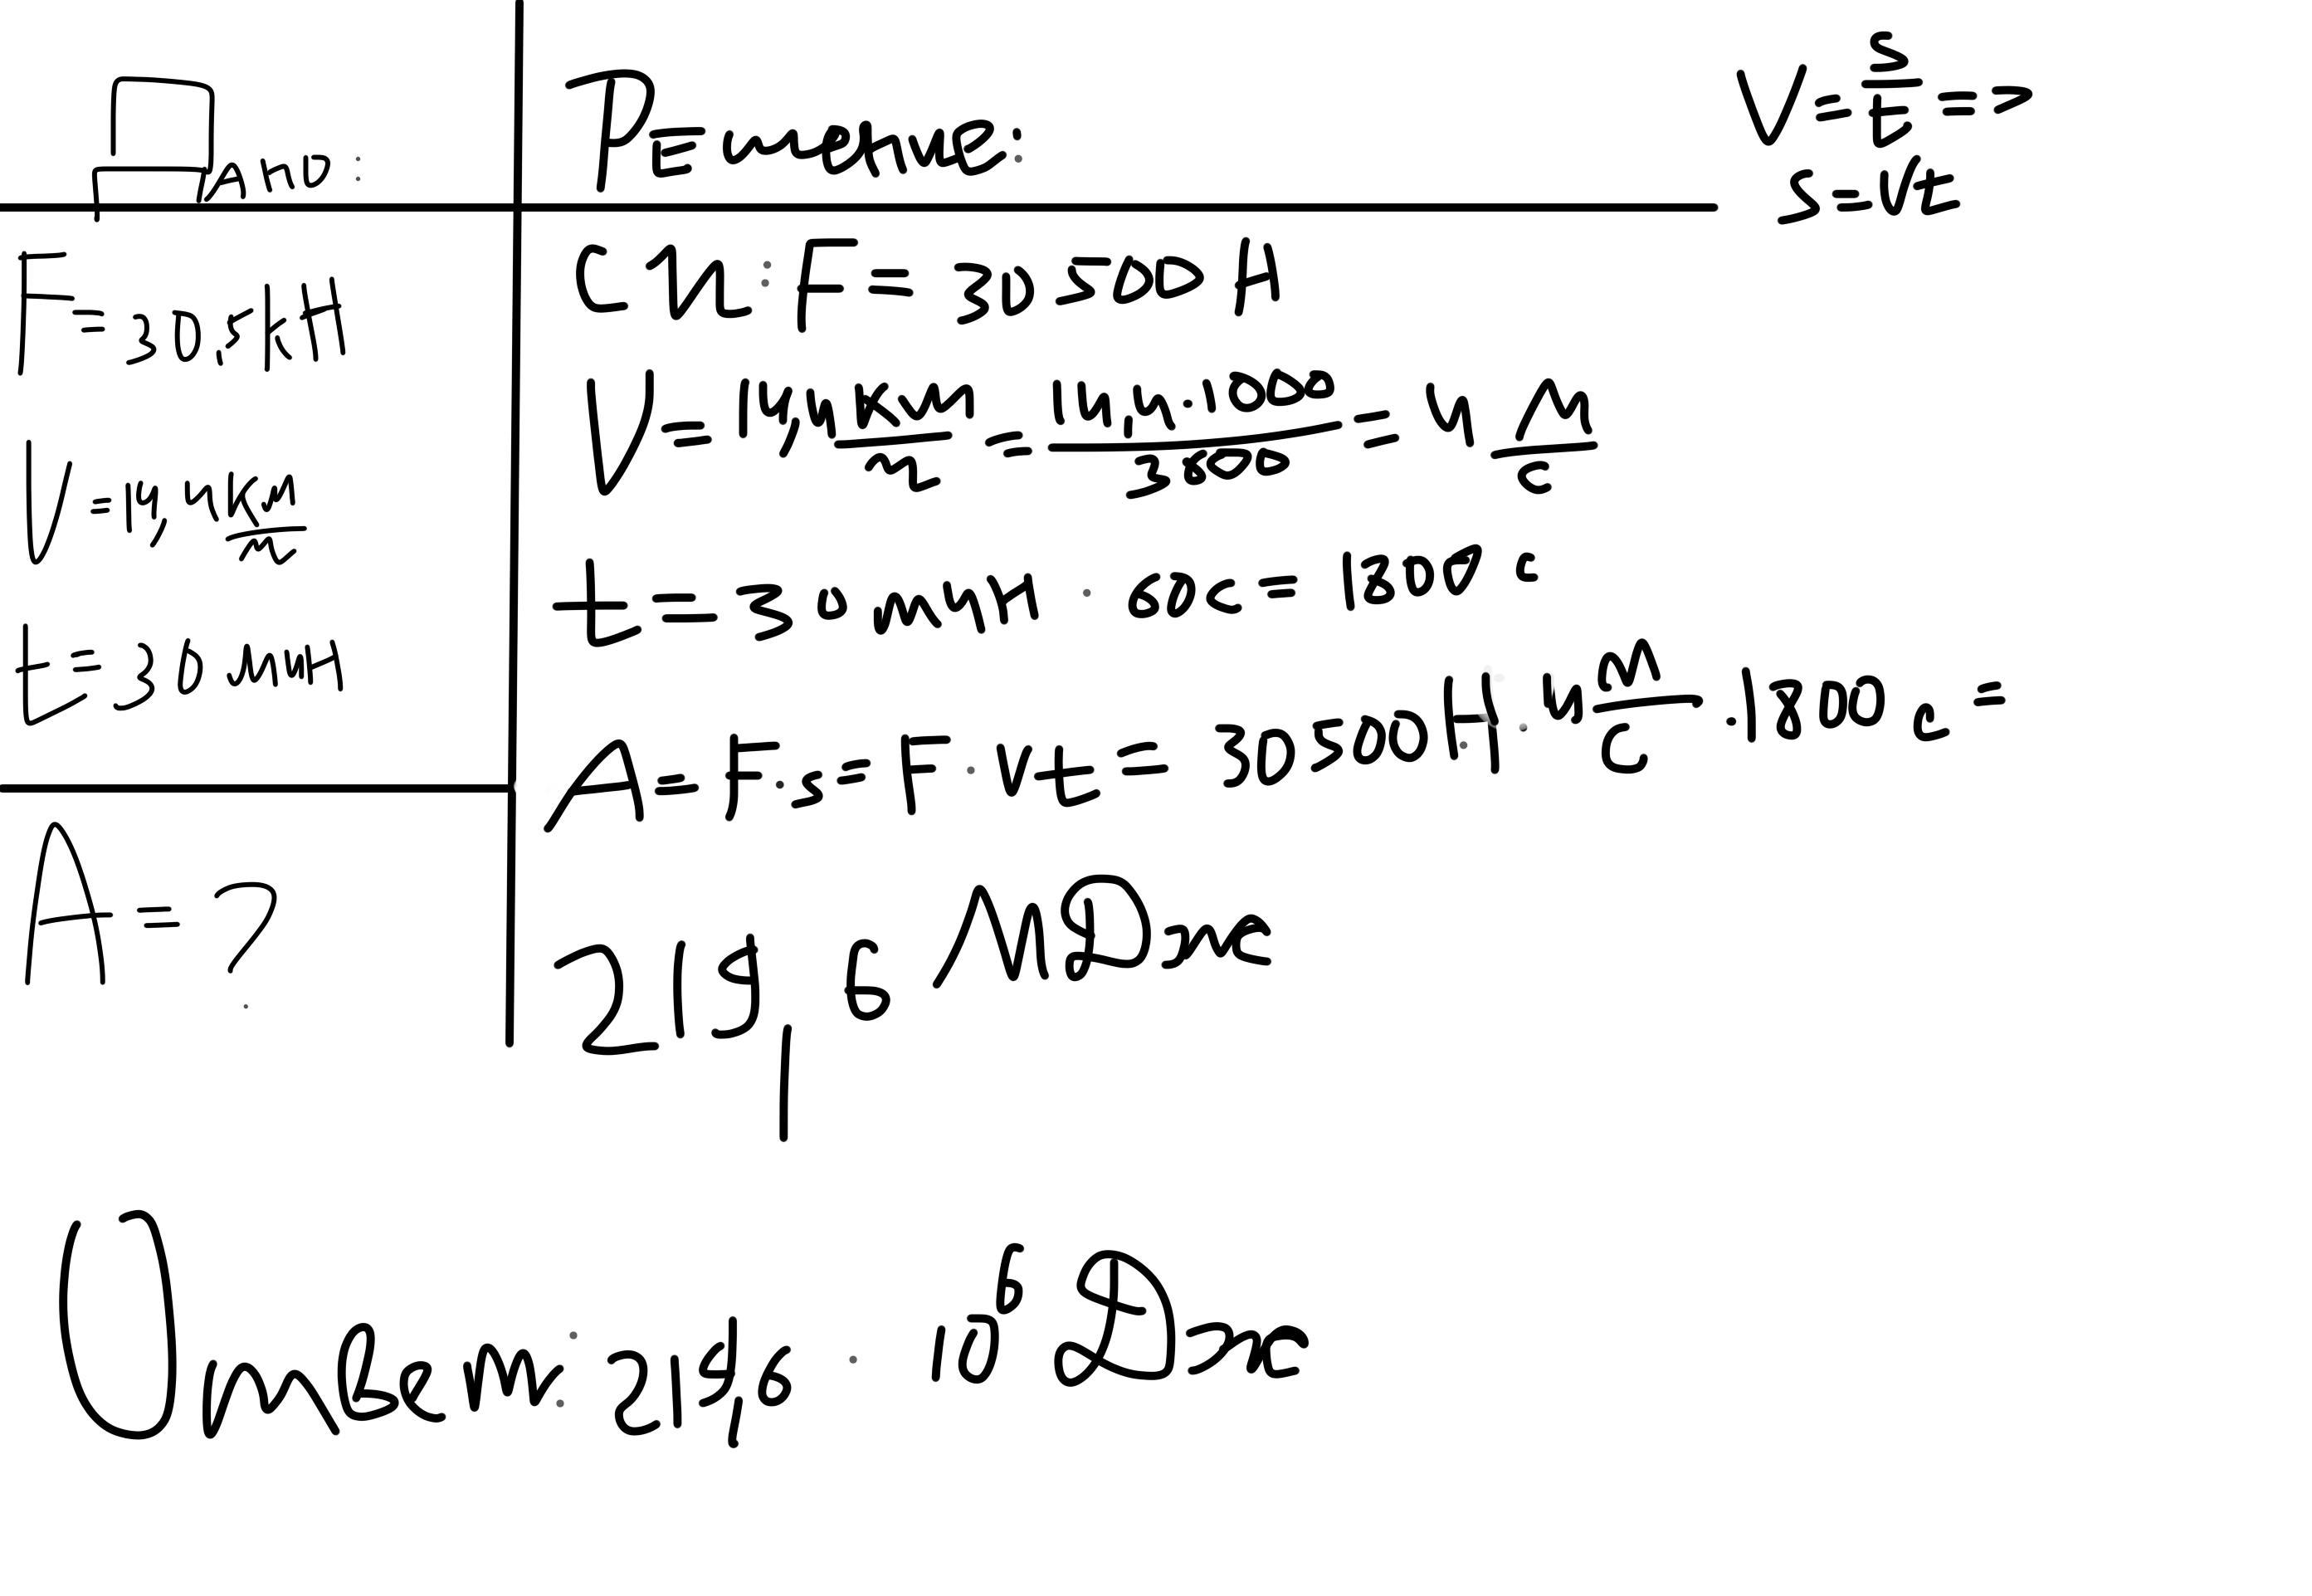 Дано:
F = 30,5 кН
V = 14,4 км/ч
t = 30 мин
A = ?
Решение:
V = s/t =>
s = Vt
СИ: F = 30500 Н
V = 14,4 км/ч = 14,4 · 1000 / 3600 = 4 м/с
t = 30 мин · 60 с = 1800 с
A = F · s = F · Vt = 30500 Н · 4 м/с · 1800 с =
219,6 МДж
Ответ: 219,6 · 10⁶ Дж